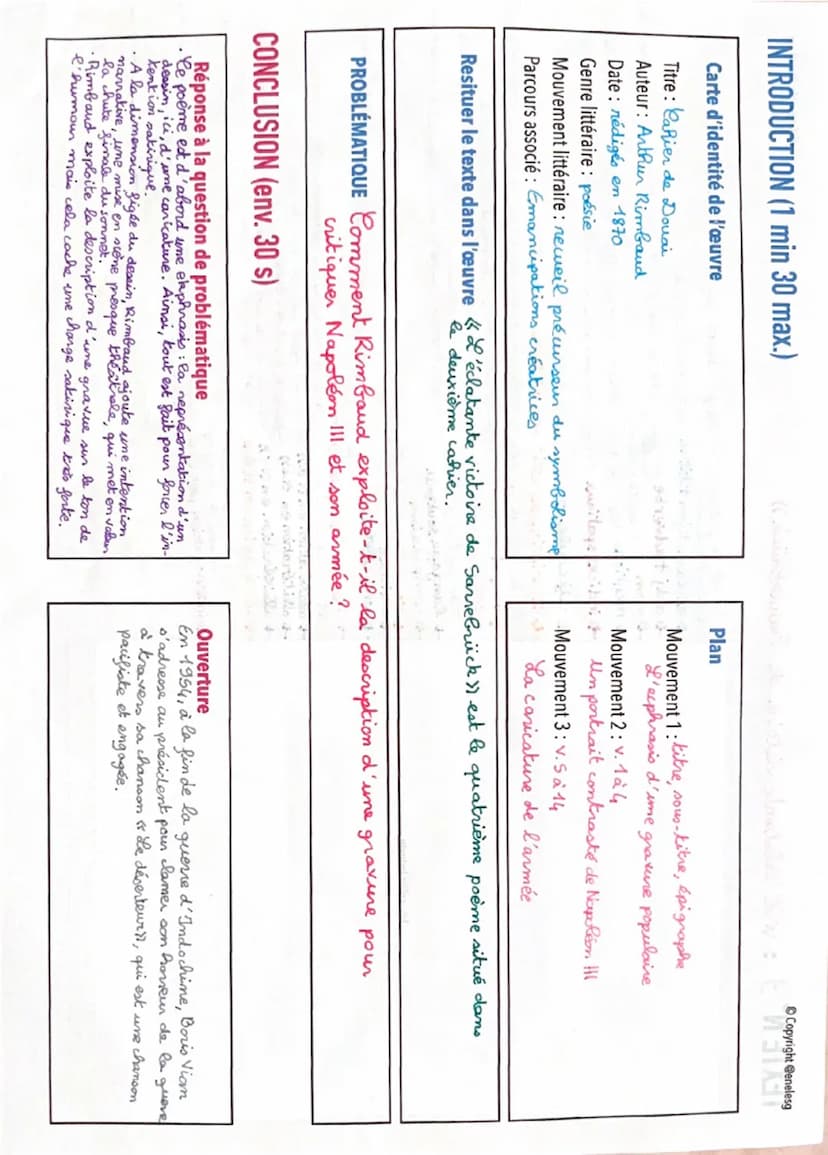 INTRODUCTION (1 min 30 max.)
© Copyright @enelesg
Carte d'identité de l'œuvre
Titre : Cahier de Douai
Auteur : Arthur Rimbaud
Date : rédigés en 1870
Genre littéraire : poésie
Mouvement littéraire : recueil précurseur du symbolisme
Parcours associé : Emancipations créatrices
Plan
Mouvement 1 : titre, sous-titre, épigraphe
L'euphrasis d'une gravure populaire
Mouvement 2 : v. 1 à 4
Un portrait contrasté de Napoléon III
Mouvement 3 : v. 5 à 14
La caricature de l'armée
Resituer le texte dans l'œuvre « L'éclatante victoire de Sarrebrück » est le quatrième poème situé dans
le deuxième cahier.
PROBLÉMATIQUE Comment Rimbaud exploite-t-il la description d'une gravure pour
critiquer Napoléon III et son armée ?
CONCLUSION (env. 30 s)
Réponse à la question de problématique
• Le poème est d'abord une ekphrasis : la représentation d'un
dessin, ici, d'une caricature. Ainsi, tout est fait pour forcer l'in-
tention satirique.
• A la dimension figée du dessin, Rimbaud ajoute une intention
narrative, une mise en scène presque théâtrale, qui met en valeur
la chute finale du sonnet.
• Rimbaud exploite la description d'une gravue sur le ton de
l'humour, mais cela cache une charge satirique très forte.
Ouverture
En 1954, à la fin de la guerre d'Indochine, Boris Vian
s'adresse au président pour clamer son horreur de la guerre
à travers sa chanson « Le déserteur », qui est une chanson
pacifiste et engagée.